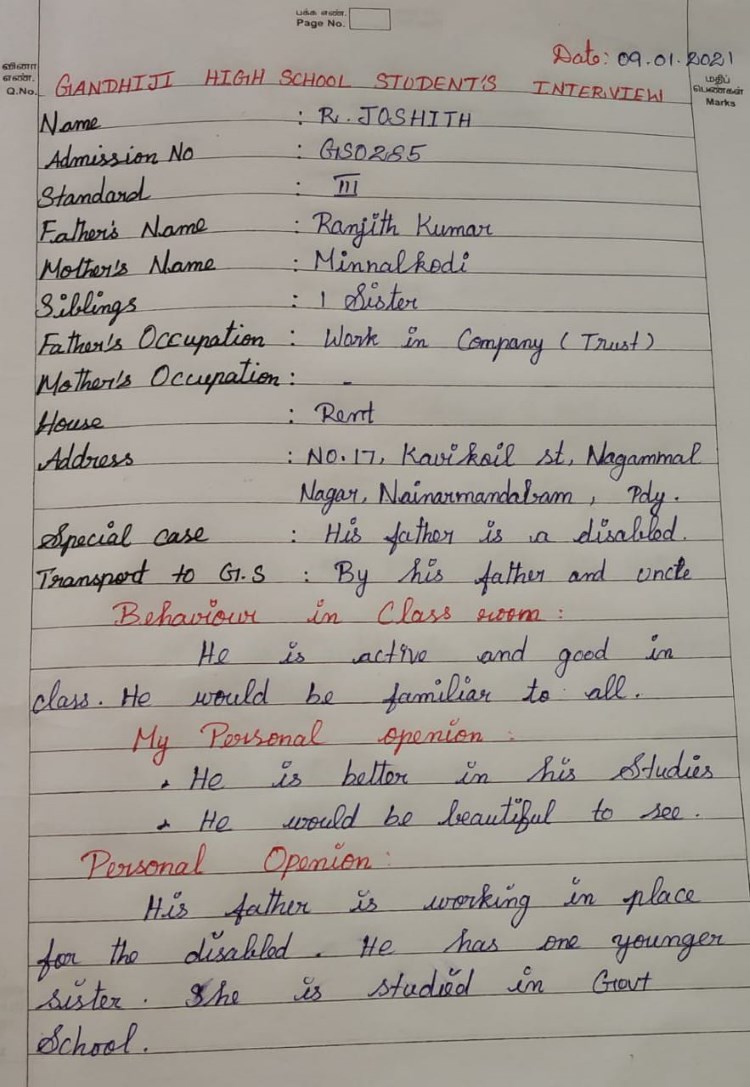 பக்க எண்.
Page No.
Date: 09.01.2021
வினா
எண்.
Q.No.
மதிப்
பெண்கள்
Marks
GANDHIJI HIGH SCHOOL STUDENT'S INTERVIEW
Name : R. JOSHITH
Admission No : GS0285
Standard : III
Father's Name : Ranjith Kumar
Mother's Name : Minnalkodi
Siblings : 1 Sister
Father's Occupation : Work in Company (Trust)
Mother's Occupation : -
House : Rent
Address : NO.17, Kavikoil st, Nagammal
Nagar, Nainarmandabam, Pdy.
Special case : His father is a disabled.
Transport to G.S : By his father and uncle
Behaviour in Class room :
He is active and good in
class. He would be familiar to all.
My Personal openion :
• He is better in his Studies
• He would be beautiful to see.
Personal Openion :
His father is working in place
for the disabled. He has one younger
sister. She is studied in Govt
School.